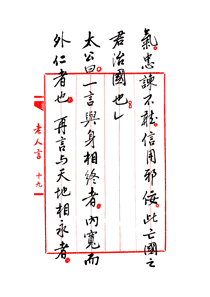 氣。忠諫不聽。信用邪佞。此亡國之
君治國也。」
太公曰。一言與身相終者。內寬而
外仁者也。再言与天地相永者。
老人言 十九